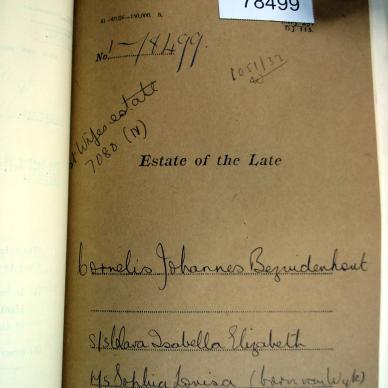 78499
41-49126-150,000. S.
D.J 113.
No. 1-/8499.
1051/32
1st Wifes estate
7080 (N)
Estate of the Late
Cornelis Johannes Bezuidenhout
s/s Clara Isabella Elizabeth
Sophia Louisa (born van Wyk)